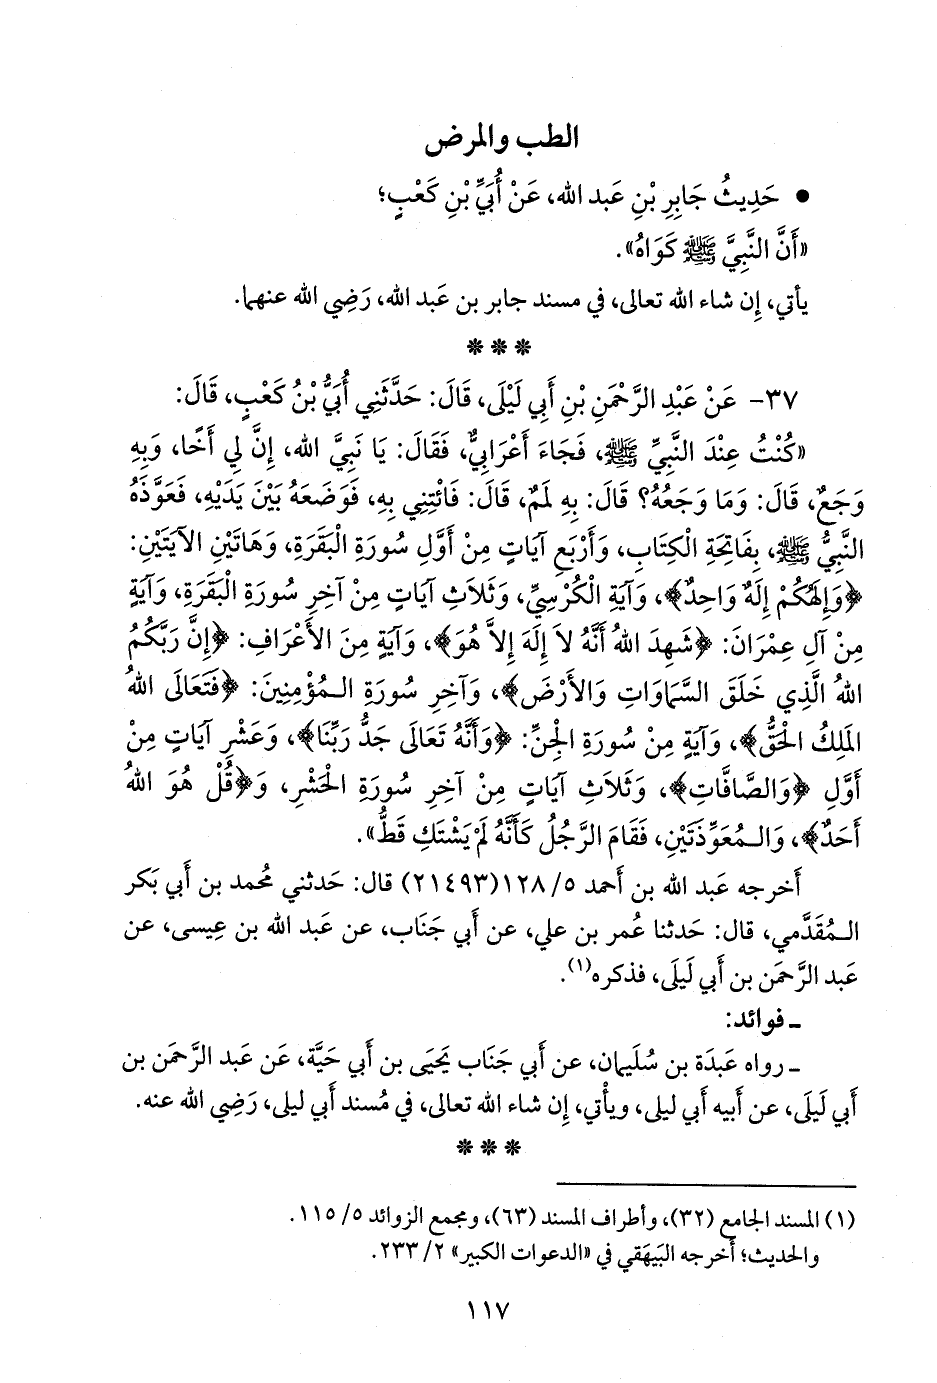 الطب والمرض
• حَدِيثُ جَابِرِ بْنِ عَبد الله، عَنْ أُبَيِّ بْنِ كَعْبٍ؛
«أَنَّ النَّبِيَّ ﷺ كَوَاهُ».
يأتي، إِن شاء الله تعالى، في مسند جابر بن عَبد الله، رَضِي الله عنهما.
* * *
٣٧- عَنْ عَبْدِ الرَّحْمَنِ بْنِ أَبِي لَيْلَى، قَالَ: حَدَّثَنِي أُبَيُّ بْنُ كَعْبٍ، قَالَ:
«كُنْتُ عِنْدَ النَّبِيِّ ﷺ، فَجَاءَ أَعْرَابِيٌّ، فَقَالَ: يَا نَبِيَّ الله، إِنَّ لِي أَخًا، وَبِهِ
وَجَعٌ، قَالَ: وَمَا وَجَعُهُ؟ قَالَ: بِهِ لَمَمٌ، قَالَ: فَائْتِنِي بِهِ، فَوَضَعَهُ بَيْنَ يَدَيْهِ، فَعَوَّذَهُ
النَّبِيُّ ﷺ، بِفَاتِحَةِ الْكِتَابِ، وَأَرْبَعِ آيَاتٍ مِنْ أَوَّلِ سُورَةِ الْبَقَرَةِ، وَهَاتَيْنِ الآيَتَيْنِ:
﴿وَإِلَهُكُمْ إِلَهٌ وَاحِدٌ﴾، وَآيَةِ الْكُرْسِيِّ، وَثَلاَثِ آيَاتٍ مِنْ آخِرِ سُورَةِ الْبَقَرَةِ، وَآيَةٍ
مِنْ آلِ عِمْرَانَ: ﴿شَهِدَ اللهُ أَنَّهُ لاَ إِلَهَ إِلاَّ هُوَ﴾، وَآيَةٍ مِنَ الأَعْرَافِ: ﴿إِنَّ رَبَّكُمُ
اللهُ الَّذِي خَلَقَ السَّمَاوَاتِ وَالأَرْضَ﴾، وَآخِرِ سُورَةِ الـمُؤْمِنِينَ: ﴿فَتَعَالَى اللهُ
الْمَلِكُ الْحَقُّ﴾، وَآيَةٍ مِنْ سُورَةِ الْجِنِّ: ﴿وَأَنَّهُ تَعَالَى جَدُّ رَبِّنَا﴾، وَعَشْرِ آيَاتٍ مِنْ
أَوَّلِ ﴿وَالصَّافَّاتِ﴾، وَثَلاَثِ آيَاتٍ مِنْ آخِرِ سُورَةِ الْحَشْرِ، وَ﴿قُلْ هُوَ اللهُ
أَحَدٌ﴾، وَالـمُعَوِّذَتَيْنِ، فَقَامَ الرَّجُلُ كَأَنَّهُ لَمْ يَشْتَكِ قَطُّ».
أَخرجه عَبد الله بن أَحمد ٥/ ١٢٨ (٢١٤٩٣) قال: حَدثني مُحمد بن أَبي بَكر
الـمُقَدَّمي، قال: حَدثنا عُمر بن علي، عن أَبي جَنَاب، عن عَبد الله بن عِيسى، عن
عَبد الرَّحمَن بن أَبي لَيلَى، فذكره(١).
ـ فوائد:
ـ رواه عَبدَة بن سُلَيمان، عن أَبي جَنَاب يَحيَى بن أَبي حَيَّة، عَن عَبد الرَّحمَن بن
أَبي لَيلَى، عن أَبيه أَبي ليلى، ويأْتي، إِن شاء الله تعالى، في مُسند أَبي ليلى، رَضِي الله عنه.
* * *
(١) المسند الجامع (٣٢)، وأطراف المسند (٦٣)، ومجمع الزوائد ٥/ ١١٥.
والحديث؛ أَخرجه البَيهَقي في «الدعوات الكبير» ٢/ ٢٣٣.
١١٧